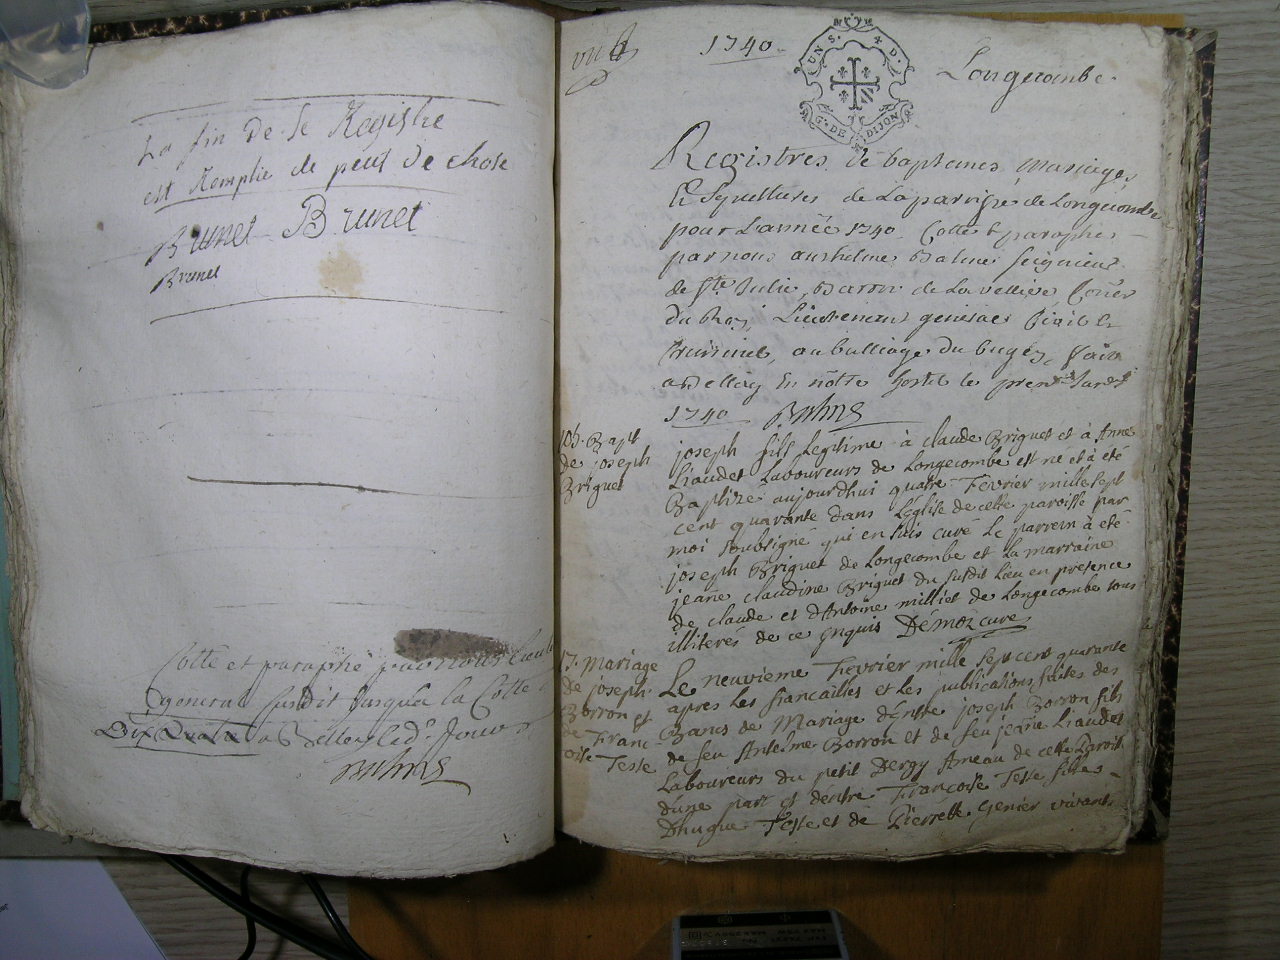 La fin de se Registre
est Remplie de peut de chose
Brunet Brunet
Brunet
Cotté et paraphé par nous Lieut
general susdit jusqua la Cotte
Dix Quatre a Belley led. Jour
1740
Longecombe
GUN S. + D.
G. DE DIJON
Registres de baptemes mariages
& Sepultures de La parroisse de Longecombe
pour L'année 1740 Cotté & paraphé
par nous anthelme Balme seigneur
de Ste Julie, Baron de La velliere, Coner
du Roy, Lieutenant general Civil &
Criminel, au balliage du bugey, fait
a Belley En nôtre hostel le premr Janer
1740
10b. Bapt
de joseph
Briguet
joseph fils Legitime à claude Briguet et à Anne
Liaudet Laboureurs de Longecombe est né et à été
Baptize aujourdhui quatre Fevrier mille sept
cent quarante dans L'Eglise de cette paroisse par
moi soubsigné qui en suis curé Le parrein à été
joseph Briguet de Longecombe et La marraine
jeane claudine Briguet du susdit Lieu en presence
de claude et d'Antoine milliet de Longecombe tous
illiterés de ce enquis Démoz curé
17. Mariage
de joseph
Borron et
de Franc-
oise Teste
Le neuvieme Fevrier mille sept cent quarante
apres les fiancailles et les publications faites des
Bancs de Mariage d'Entre joseph Borron fils
de feu Antelme Borron et de feu jeane Liaudet
Laboureurs du petit Dergy Ameau de cette Paroiss
d'une part et d'entre Françoise Teste fille
D'hugue Teste et de Pierrette Genier vivants